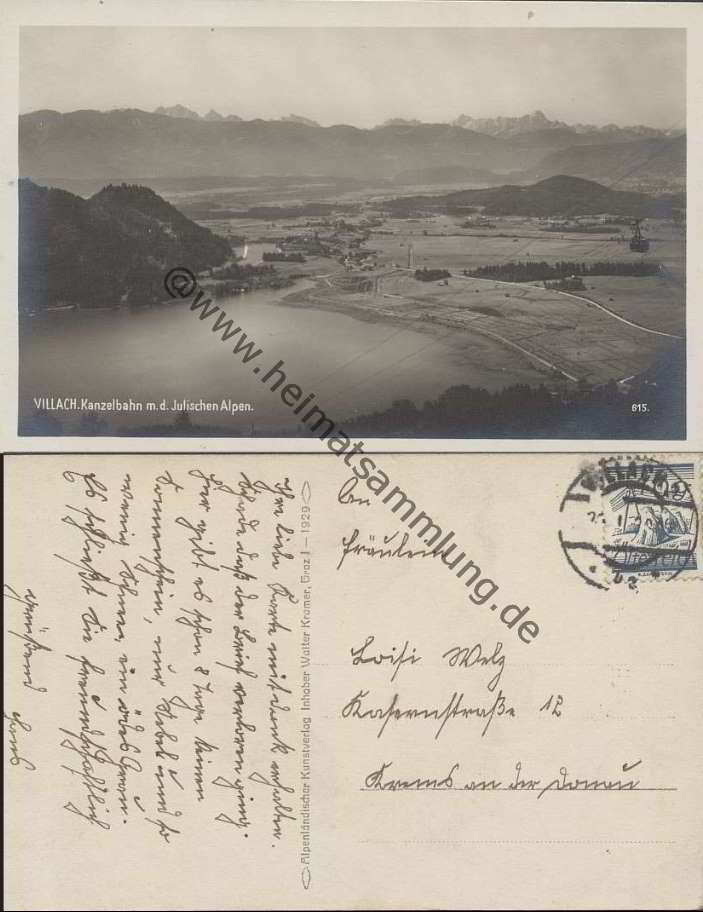 VILLACH. Kanzelbahn m. d. Julischen Alpen.
615.
@www.heimatsammlung.de
Ihre liebe Karte mit Dank erhalten.
Schade daß der Brief verloren ging.
Hier gibt es schon 8 Tage keinen
Sonnenschein, nur Nebel und so
wenig Schnee
Es schließt Sie freundschaftlich
grüßend Hans
Alpenländischer Kunstverlag Inhaber Walter Kramer, Graz I — 1929
An
Fräulein
Loisi Welz
Kasernstraße 12
Krems an der Donau
VILLACH